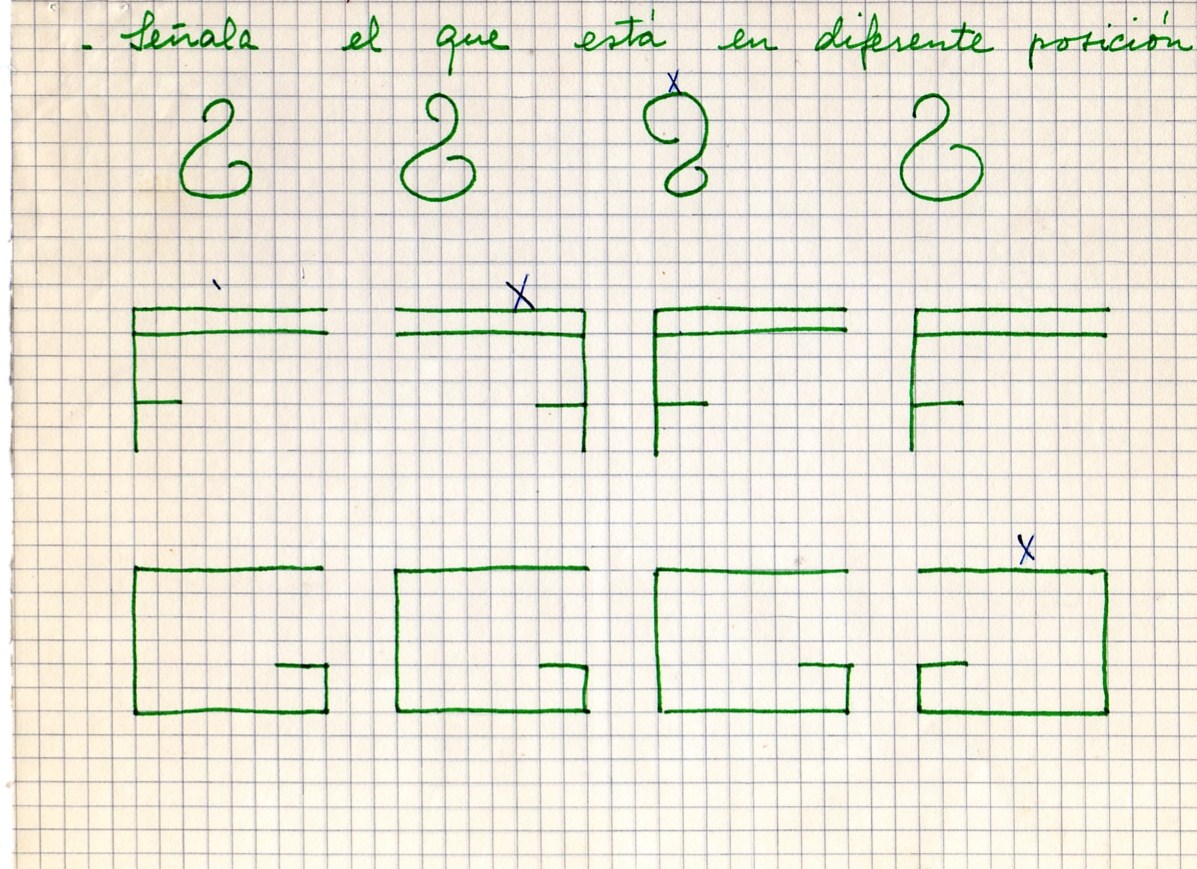 - Señala el que está en diferente posición
X
X
X